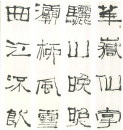 華嶽仙掌
驪山晚照
灞柳風雪
曲江流飲